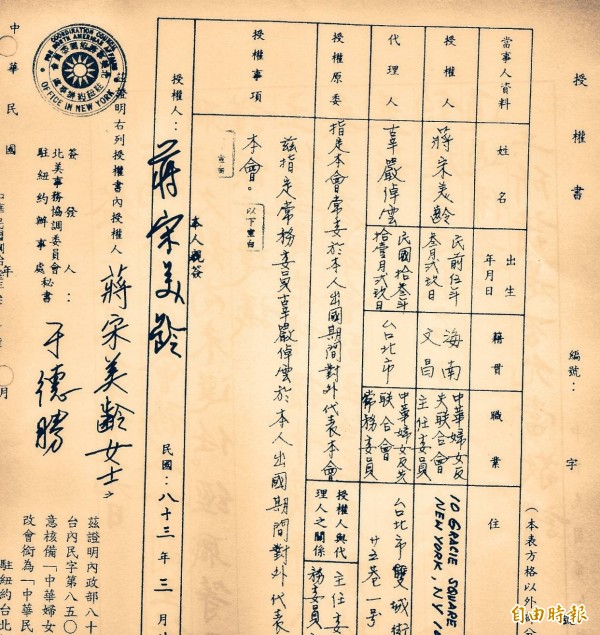 授權書
編號： 字
（本表方格以外
當事人資料
姓名
出生年月日
籍貫
職業
住
授權人
蔣宋美齡
民前伍年
叁月貳玖日
海南
文昌
中華婦女反
共聯合會
主任委員
10 GRACIE SQUARE
NEW YORK, NY 10
代理人
辜嚴倬雲
民國拾叁年
拾壹月貳玖日
台北市
中華婦女反共
聯合會
常務委員
台北市雙城街
廿五巷一号
授權原委
指定本會常委於本人出國期間對外代表本會
授權人與代
理人之關係
主任委
務委員
授權事項
茲指定常務委員辜嚴倬雲於本人出國期間對外代表
本會。
以下空白
授權人：
蔣宋美齡
本人親簽
民國：八十三年三月
茲證明右列授權書內授權人
蔣宋美齡女士之
簽發人：
北美事務協調委員會
駐紐約辦事處秘書
于德勝
中華民國
年
月
茲證明內政部八十
台內民字第八五〇
意核備「中華婦女
改會銜為「中華民
駐紐約台北
COORDINATION COUNCIL
FOR NORTH AMERICAN AFFAIRS
OFFICE IN NEW YORK
自由時報